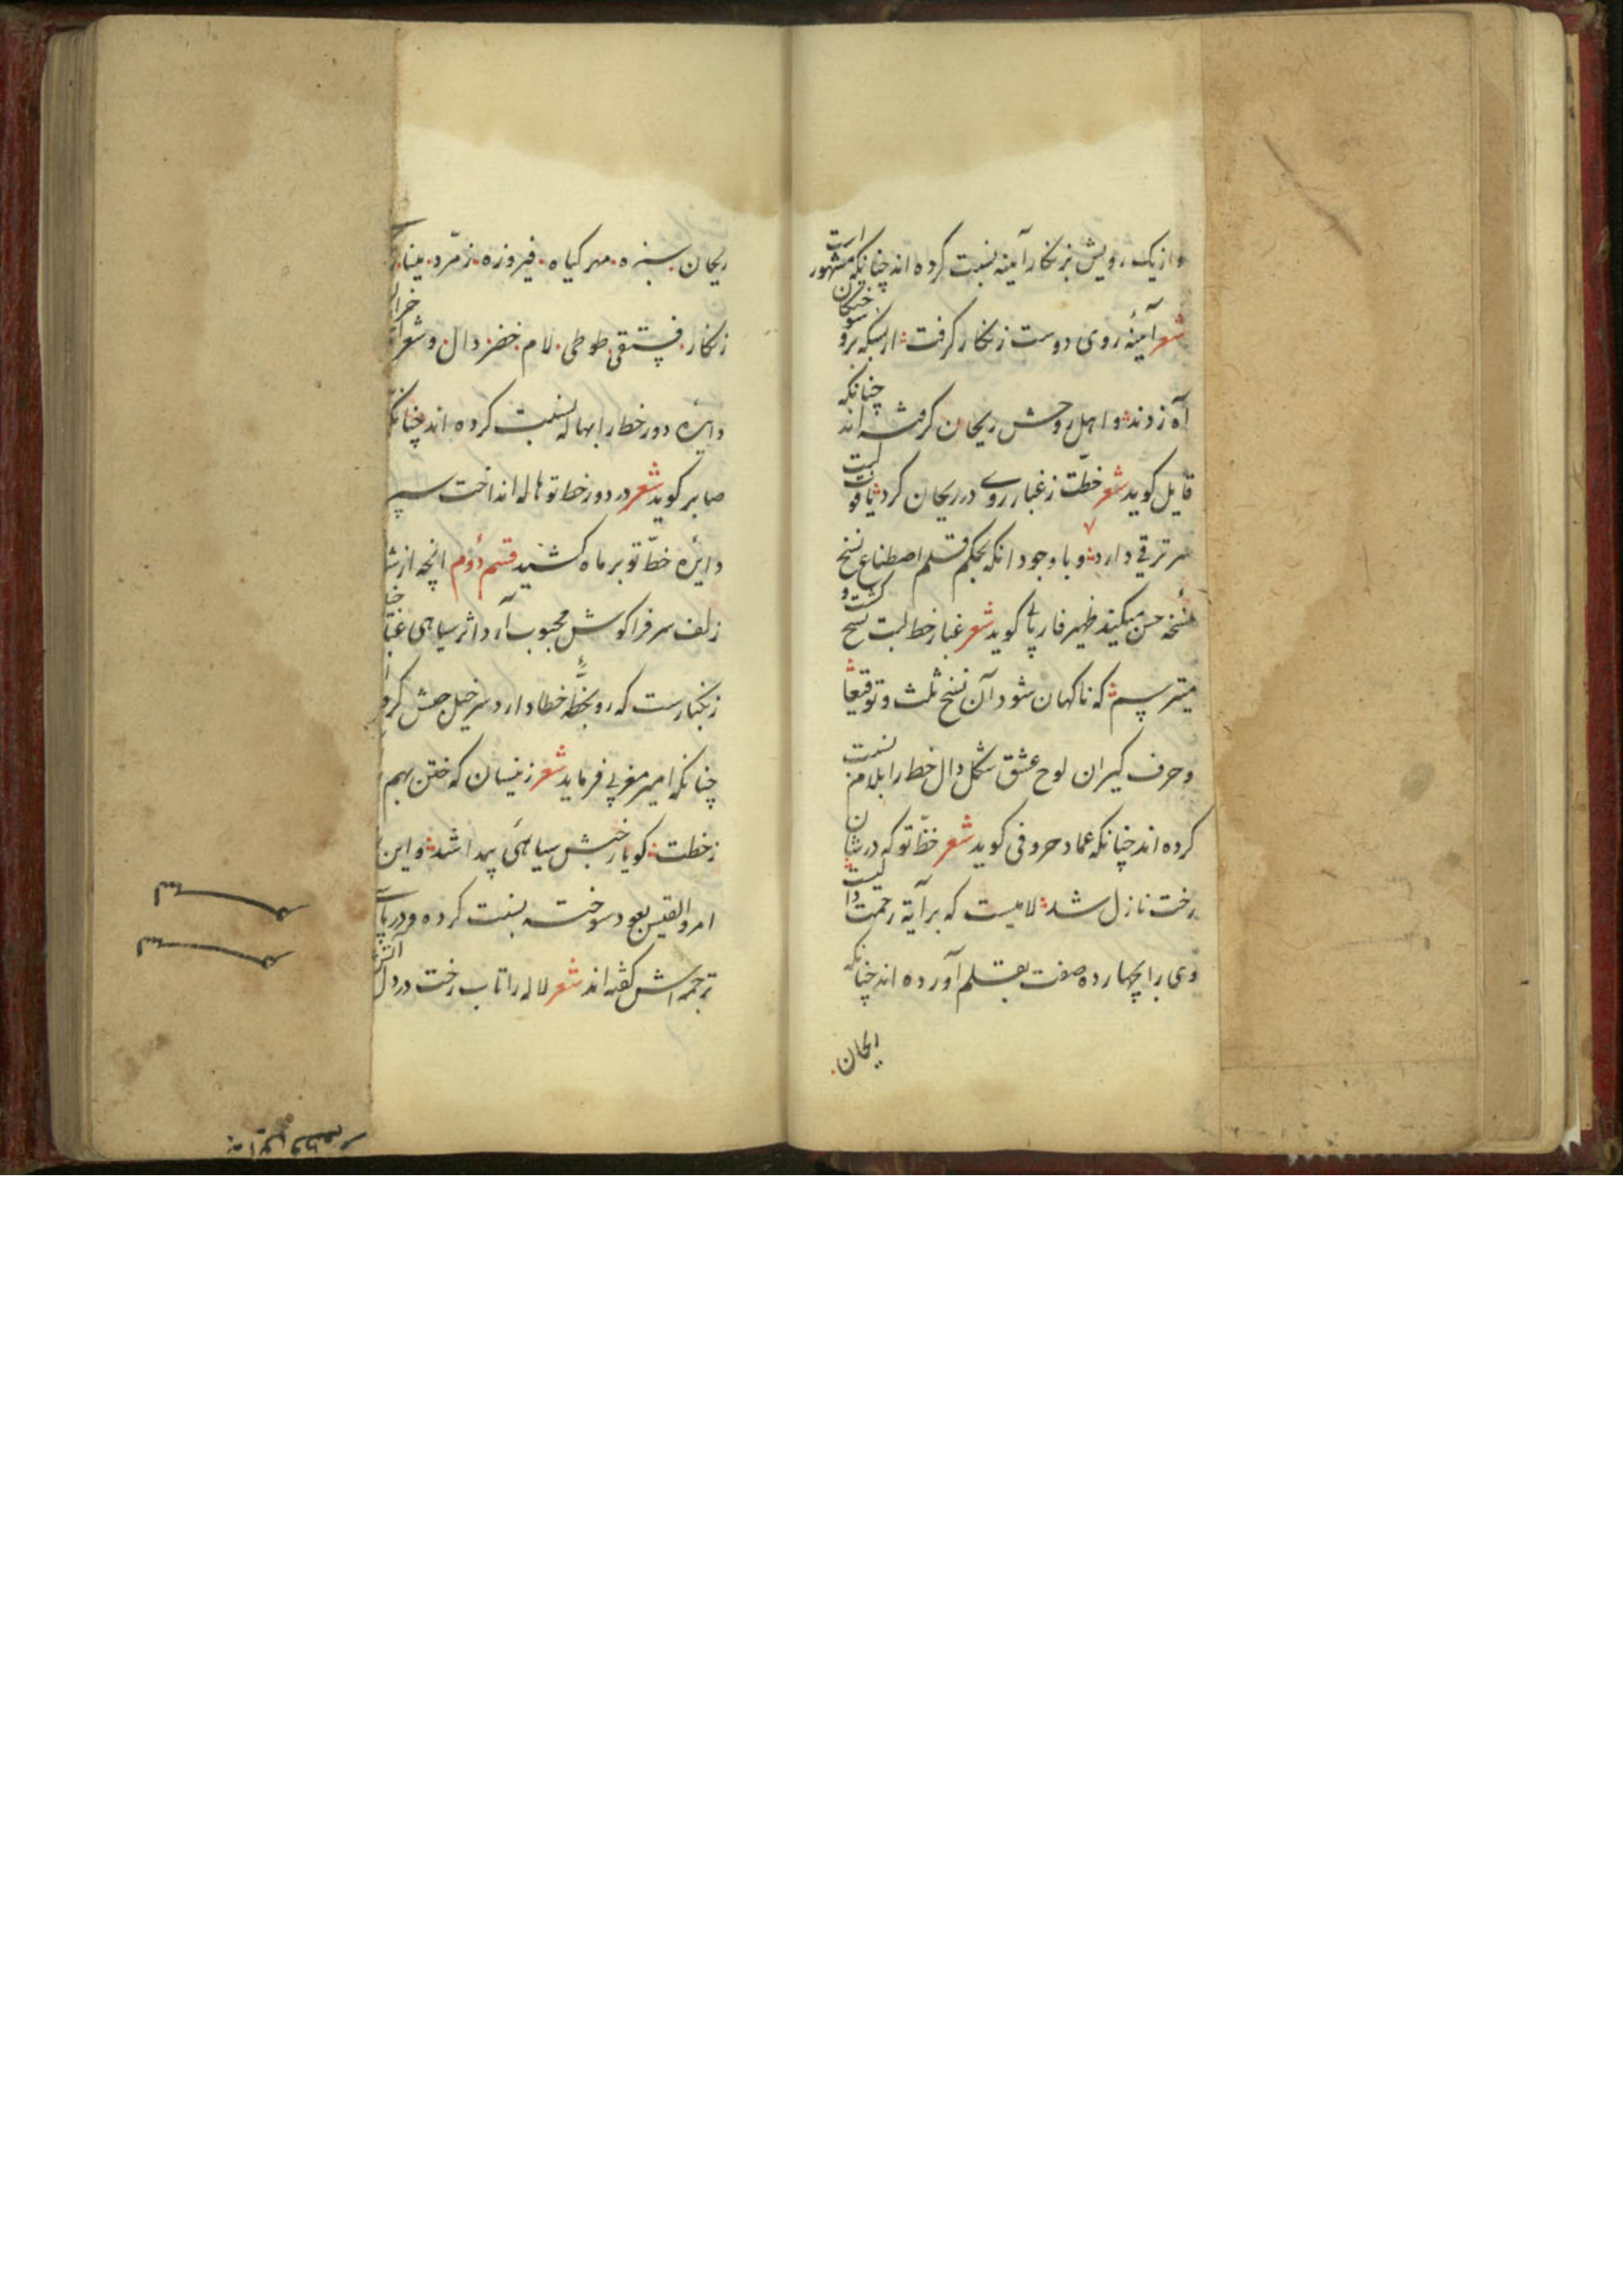 و از یک رویش بزنکار آینه نسبت کرده اند چنانکه مشهور است
شعر آینهٔ روی دوست زنکار کرفت ؛ از بسکه برو سوختکان
آه زدند ؛ و اهل روحش ریحان کرفته اند چنانکه
قایل کوید شعر خطت ز غبار روی در ریحان کرد ؛ یاقوت لبت
سر ترقی دارد ؛ و با وجود انکه بحکم قلم اصطناع نسخ
نسخهٔ حسن میکند ظهیر فاریابی کوید شعر غبار خط لبت نسخ کشت و
میترسم ؛ که ناکهان شود آن نسخ ثلث و توقیعا
و حرف کیران لوح عشق شکل دال خط را بلام نسبت
کرده اند چنانکه عماد حروفی کوید شعر خط تو که در شان
رخت نازل شد ؛ لامیست که بر آیة رحمت دالیست
وی را بچهارده صفت بقلم آورده اند چنانکه
ریحان
ریحان. سبزه. مهر کیاه. فیروزه. زمرّد. مینا.
زنکار. فستقی. طوطی. لام. خضر. دال. و شعرا
دایرهٔ دور خط را بهاله نسبت کرده اند چنانکه
صابر کوید شعر در دور خط تو هاله انداخت سپر
دایرهٔ خطّ تو بر ماه کشید قسم دوم انچه از
زلف سر فرا کوش محبوب آرد اثر سیاهی
زنکبارست که رو بخطّهٔ خطا دارد سر خیل حبش
چنانکه امیر مغربی فرماید شعر زینسان که ختن بهم
ز خطت ؛ کویا ز حبش سیاهی پیدا شد ؛ و این
امرو القیس بعود سوخته نسبت کرده و در پارسی
ترجمه اش کفته اند شعر لاله را تاب رخت در دل آتش